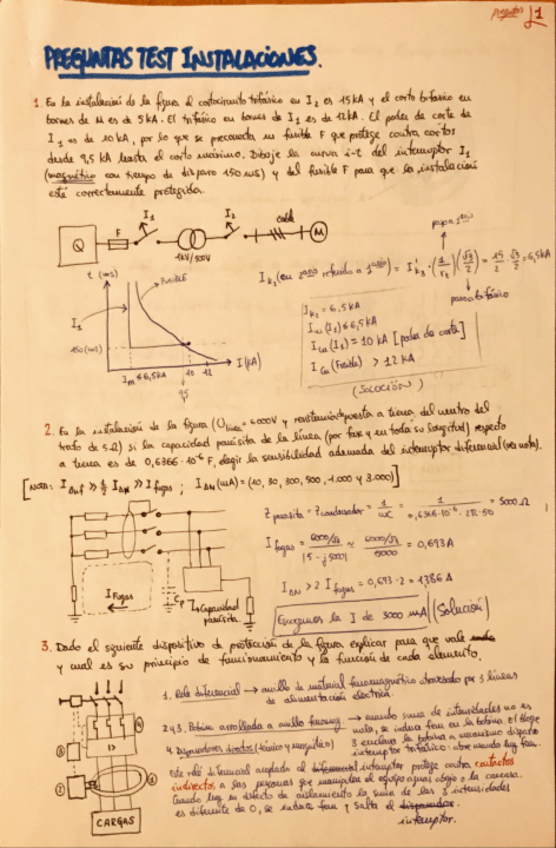 Preguntas
1
PREGUNTAS TEST INSTALACIONES.
1. En la instalación de la figura el cortocircuito trifásico en I2 es 15kA y el corto bifásico en
bornes de M es de 5kA. El trifásico en bornes de I1 es de 12kA. El poder de corte de
I1 es de 10kA, por lo que se precavecta un fusible F que protege contra cortos
desde 9,5 kA hasta el corto máximo. Dibuje la curva i-t del interruptor I1
(magnético con tiempo de disparo 150 ms) y del fusible F para que la instalación
esté correctamente protegida.
Q
F
I1
I2
cable
M
1kV/500V
t (ms)
FUSIBLE
I1
150 (ms)
I (kA)
Im ≤ 6,5kA
10 12
9,5
paso a 1ario
Ik2 (en 2ario referido a 1ario) = Ik3 · (1/rt) (√3/2) = 15/2 · √3/2 = 6,5kA
paso a bifásico
Ik2 = 6,5kA
Im (I1) ≤ 6,5kA
ICu (I1) = 10 kA [poder de corte]
ICu (Fusible) > 12 kA
(SOLUCIÓN)
2. En la instalación de la figura (Ulínea = 6000V y resistencia puesta a tierra del neutro del
trafo de 5Ω) si la capacidad parásita de la línea (por fase y en toda su longitud) respecto
a tierra es de 0,6366·10⁻⁶ F, elegir la sensibilidad adecuada del interruptor diferencial (ver nota).
[NOTA: I >> ½ IΔN >> I fugas ; IΔN (mA) = (10, 30, 300, 500, 1.000 y 3.000)]
I Fugas
Cp
Capacidad
parásita
Z parásita = Z condensador = 1/ωC = 1/(0,6366·10⁻⁶·2π·50) = 5000 Ω
I fugas = (6000/√3)/|5-j5000| ≈ (6000/√3)/5000 = 0,693A
IΔN > 2 I fugas = 0,693·2 = 1,386 A
Escogemos la I de 3000 mA (Solución)
3. Dado el siguiente dispositivo de protección de la figura explicar para que vale
y cual es su principio de funcionamiento y la función de cada elemento.
I>
CARGAS
1. Relé diferencial → anillo de material ferromagnético atravesado por 3 líneas
de alimentación eléctrica.
2 y 3. Bobina arrollada a anillo ferromag. → cuando suma de intensidades no es
nula, se induce fem en la bobina. El bloque
4. Disparadores directos (térmico y magnético)
3 enclava la bobina a mecanismo disparo
interruptor trifásico: abre cuando hay fem.
Este relé diferencial acoplado al interruptor protege contra contactos
indirectos a las personas que manipulen el equipo aguas abajo a la carcasa.
Cuando hay un defecto de aislamiento la suma de las 3 intensidades
es diferente de 0, se induce fem y salta el
interruptor.